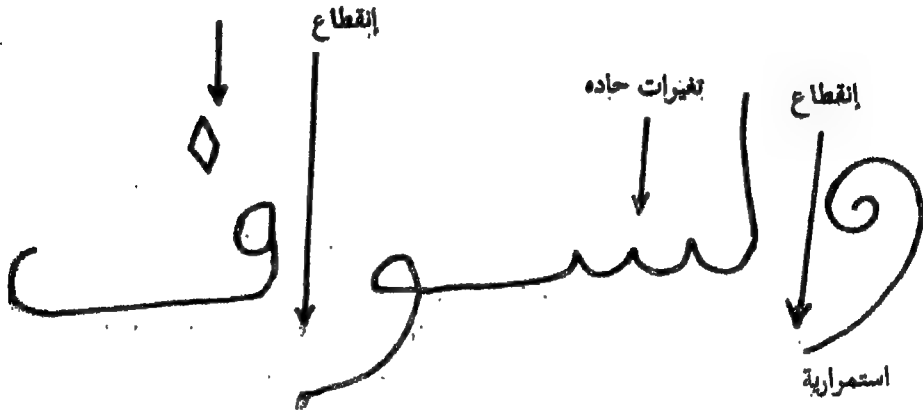 إنقطاع
تغيرات حاده
إنقطاع
استمرارية